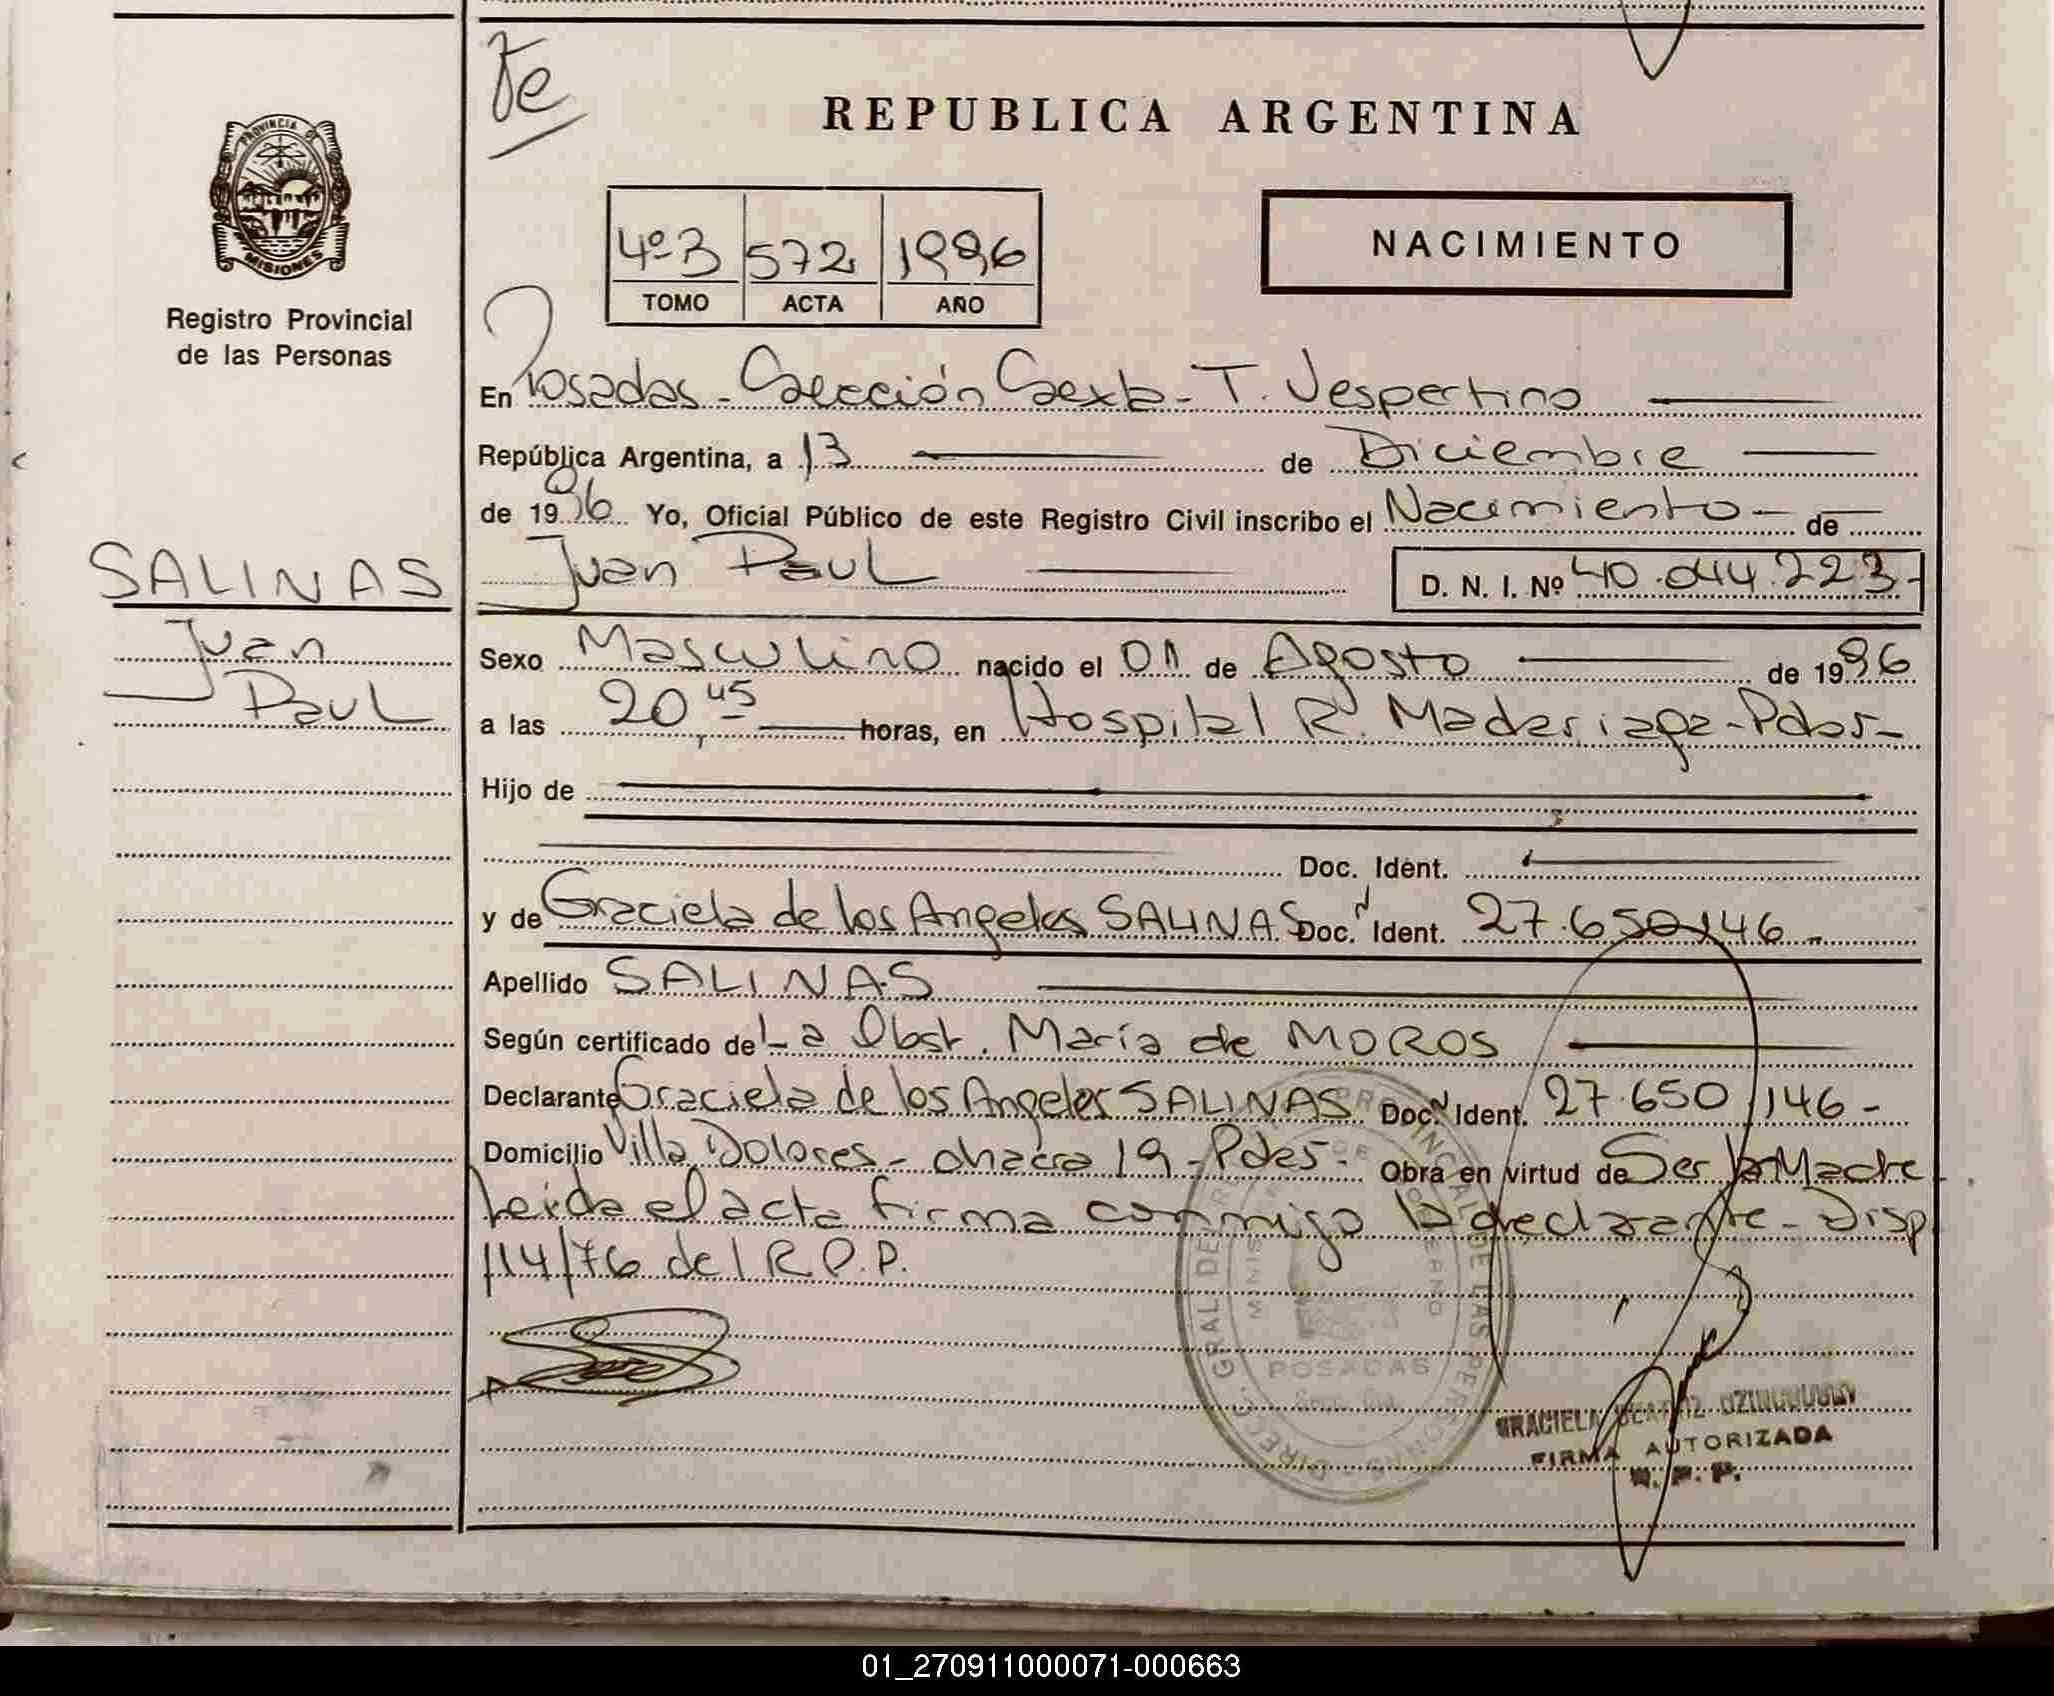 Te
REPUBLICA ARGENTINA
PROVINCIA DE
MISIONES
Registro Provincial
de las Personas
4º3 572 1996
TOMO ACTA AÑO
NACIMIENTO
En Posadas - Sección Sexta - T. Vespertino
República Argentina, a 13 de Diciembre
de 1996 Yo, Oficial Público de este Registro Civil inscribo el Nacimiento - de
Juan Paul D. N. I. Nº 40.044.223-
SALINAS
Juan
Paul
Sexo Masculino nacido el 01 de Agosto de 1996
a las 20,45 horas, en Hospital R. Madariaga - Pdas -
Hijo de
Doc. Ident.
y de Graciela de los Angeles SALINAS Doc. Ident. 27.650.146 -
Apellido SALINAS
Según certificado de La Obst. María de MOROS
Declarante Graciela de los Angeles SALINAS Doc. Ident. 27.650.146 -
Domicilio Villa Dolores - chacra 19 - Pdas - Obra en virtud de Ser la Madre
Leida el acta firma conmigo la declarante - Disp
114/76 del R.P.P.
POSADAS
GRACIELA BEATRIZ
FIRMA AUTORIZADA
R. P. P.
01_270911000071-000663